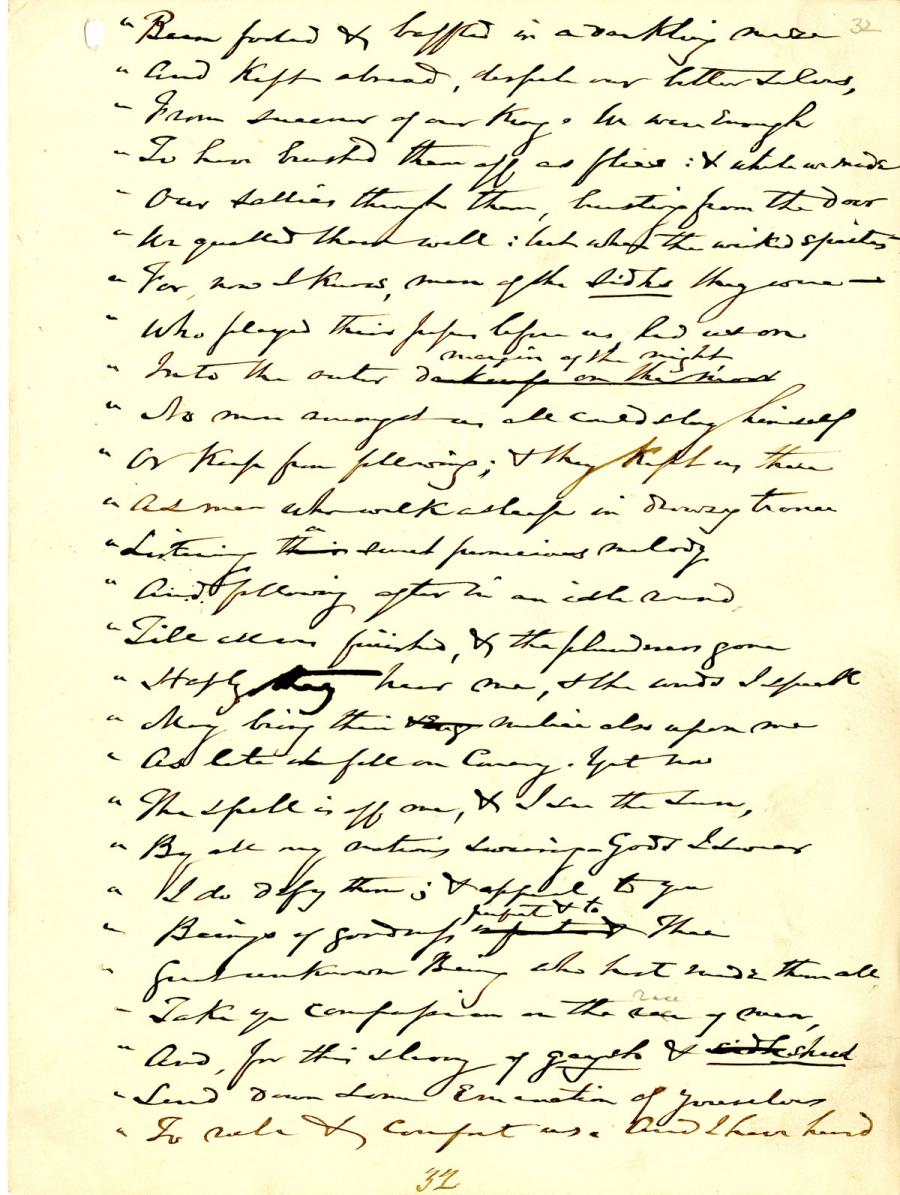 32
"Been fooled & baffled in a darkling maze
"And kept abroad, despite our better selves,
"From succour of our King. We were enough
"To have brushed them off as flies: & while we made
"Our sallies through them, bursting from the door
"We quelled them well: but when the wicked spirits
"For, now I know, men of the Sidhs they were —
"Who played their pipes before us, led us on
margin of the night
"Into the outer darkness on the moor
"No man amongst us all could stay himself
"Or keep from following; & they kept us there
"As men who walk asleep in drowsy trance
a
"Listening their sweet pernicious melody
"And following after in an idle round,
"Till all was finished, & the plunderers gone
"Haply they hear me, & the words I speak
"May bring their malice also upon me
"As late it fell on Conary. Yet now
"The spell is off me, & I see the Sun,
"By all my nations swearing-Gods I swear
"I do defy them; & appeal to you
perfect & to
"Beings of goodness Thee
"Great unknown Being who hast made them all,
race
"Take ye compassion on the race of men,
"And, for this slavery of gaysh & sidh
"Send down some Emanation of yourselves
"To rule & comfort us. And I have heard
32